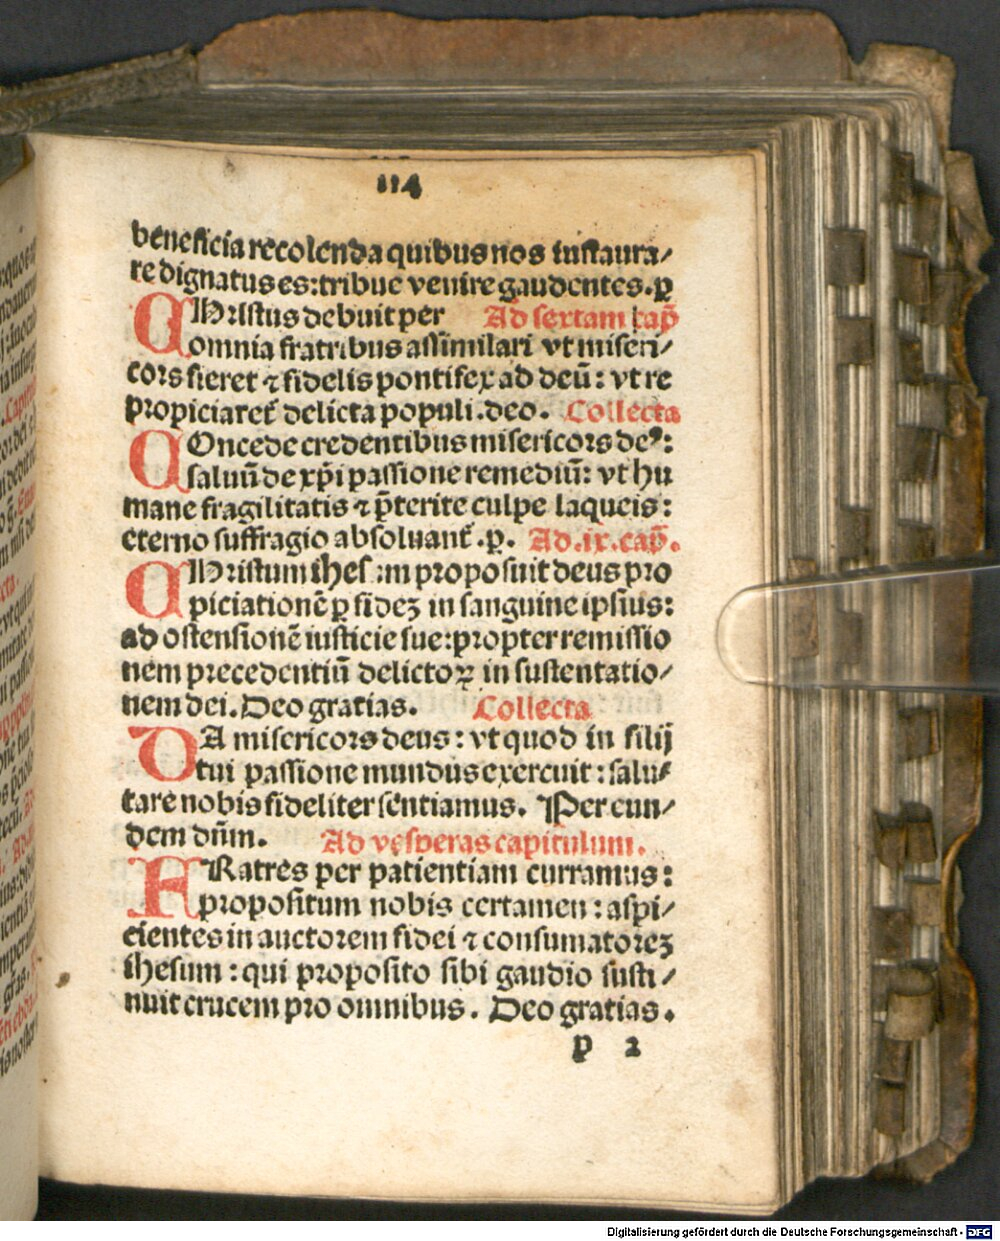 114
beneficia recolenda quibus nos instaura/
re dignatus es: tribue venire gaudentes. ꝑ
CHristus debuit per Ad sextam cap̄
omnia fratribus assimilari vt miseri/
cors fieret ⁊ fidelis pontifex ad deū: vt re
propiciaret᷑ delicta populi. deo. Collecta
COncede credentibus misericors deꝰ:
saluū de xp̄i passione remediū: vt hu
mane fragilitatis ⁊ p̄terite culpe laqueis:
eterno suffragio absoluant᷑. p. Ad .ix. cap̄.
CHristum ihesum proposuit deus pro
piciationē ꝑ fidez in sanguine ipsius:
ad ostensionē iusticie sue: propter remissio
nem precedentiū delictoꝝ in sustentatio/
nem dei. Deo gratias. Collecta
DA misericors deus: vt quod in filij
tui passione mundus exercuit: salu/
tare nobis fideliter sētiamus. Per eun/
dem dn̄m. Ad vesperas capitulum.
FRatres per patientiam curramus:
propositum nobis certamen: aspi/
cientes in auctorem fidei ⁊ consumatorez
ihesum: qui proposito sibi gaudio susti/
nuit crucem pro omnibus. Deo gratias.
p 2
Digitalisierung gefördert durch die Deutsche Forschungsgemeinschaft - DFG